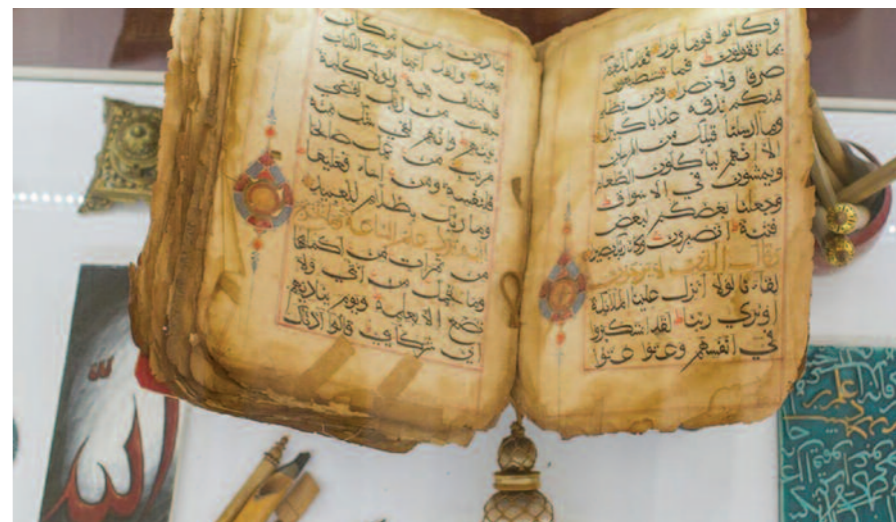 وكانوا قوما بورا فقد كذبوكم
بما تقولون فما تستطيعون
صرفا ولا نصرا ومن يظلم
منكم نذقه عذابا كبيرا
وما ارسلنا قبلك من المرسلين
الا انهم لياكلون الطعام
ويمشون في الاسواق
وجعلنا بعضكم لبعض
فتنة اتصبرون وكان ربك بصيرا
وقال الذين لا يرجون
لقاءنا لولا انزل علينا الملئكة
او نرى ربنا لقد استكبروا
في انفسهم وعتوا عتوا
ينادون من مكان
بعيد ولقد اتينا موسى الكتاب
فاختلف فيه ولولا كلمة
سبقت من ربك لقضي
بينهم وانهم لفي شك منه
مريب من عمل صالحا
فلنفسه ومن اساء فعليها
وما ربك بظلام للعبيد
اليه يرد علم الساعة وما تخرج
من ثمرات من اكمامها
وما تحمل من انثى ولا
تضع الا بعلمه ويوم يناديهم
اين شركاءي قالوا اذناك
الله